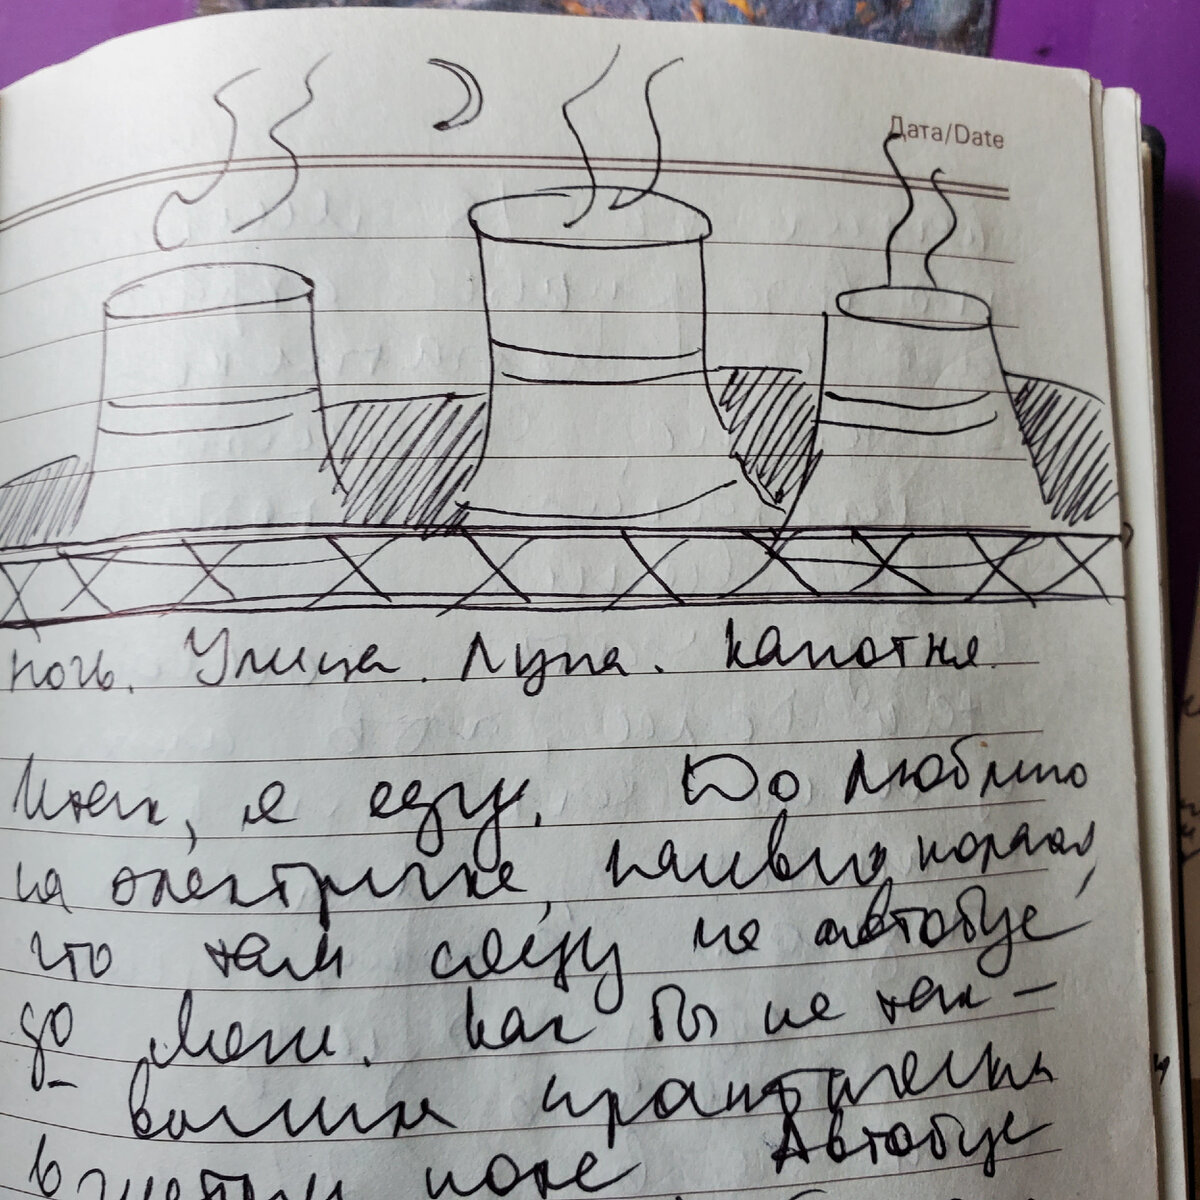 Дата/Date
Ночь. Улица. Луна. Капотня.
Итак, я еду. До Люблино
на электричке, наивно полагая,
что там сяду на автобус
до Меги. Как бы не так –
вышла практически
в чистом поле Автобус